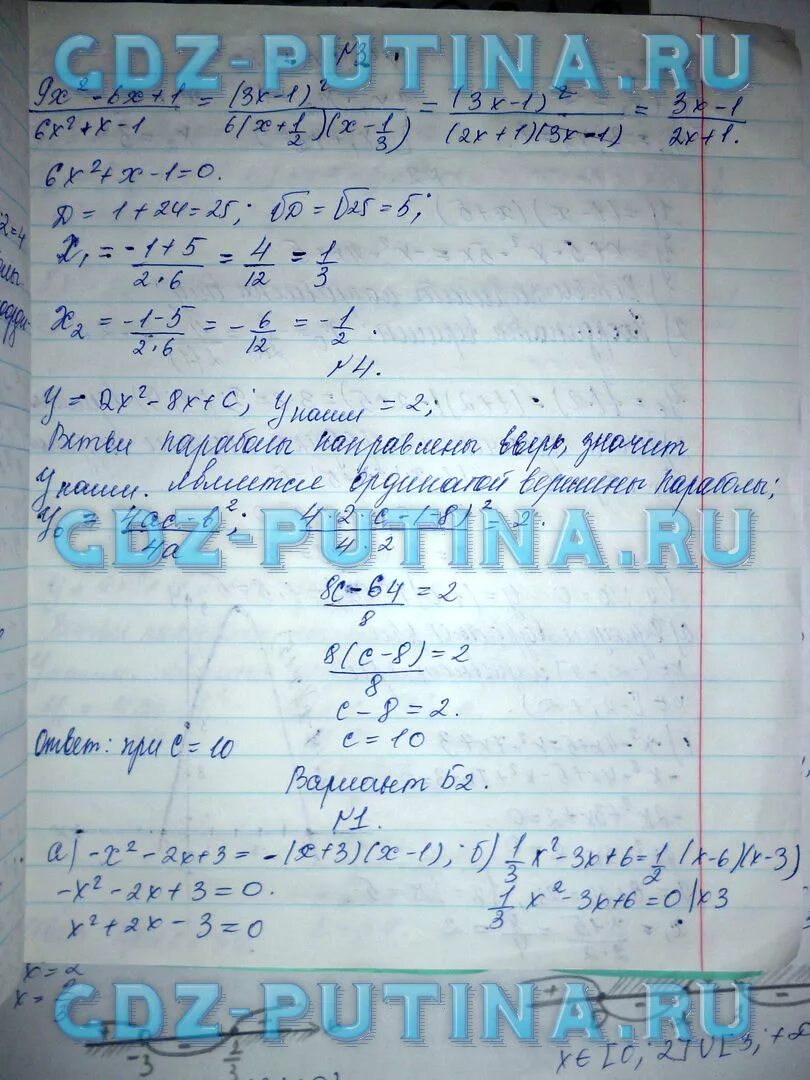 GDZ-PUTINA.RU
№3.
(9x² - 6x + 1)/(6x² + x - 1) = (3x-1)²/(6(x + 1/2)(x - 1/3)) = (3x-1)²/((2x+1)(3x-1)) = (3x-1)/(2x+1).
6x² + x - 1 = 0.
Д = 1 + 24 = 25; √D = √25 = 5;
x₁ = (-1+5)/(2·6) = 4/12 = 1/3
x₂ = (-1-5)/(2·6) = -6/12 = -1/2.
№4.
y = 2x² - 8x + c; y наим = 2;
Ветви параболы направлены вверх, значит
y наим. является ординатой вершины параболы;
y₀ = (4ac - b²)/4a; (4·2·c - (-8)²)/(4·2) = 2.
GDZ-PUTINA.RU
(8c - 64)/8 = 2
8(c - 8)/8 = 2
c - 8 = 2.
c = 10
Ответ: при c = 10
Вариант Б2.
№1.
а) -x² - 2x + 3 = -(x+3)(x-1); б) 1/3 x² - 3x + 6 = 1/2 (x-6)(x-3)
-x² - 2x + 3 = 0. 1/3 x² - 3x + 6 = 0 |x3
x² + 2x - 3 = 0
x = 2
GDZ-PUTINA.RU
+ -3 - 2/3
x ∈ [0; 2] U [3; +